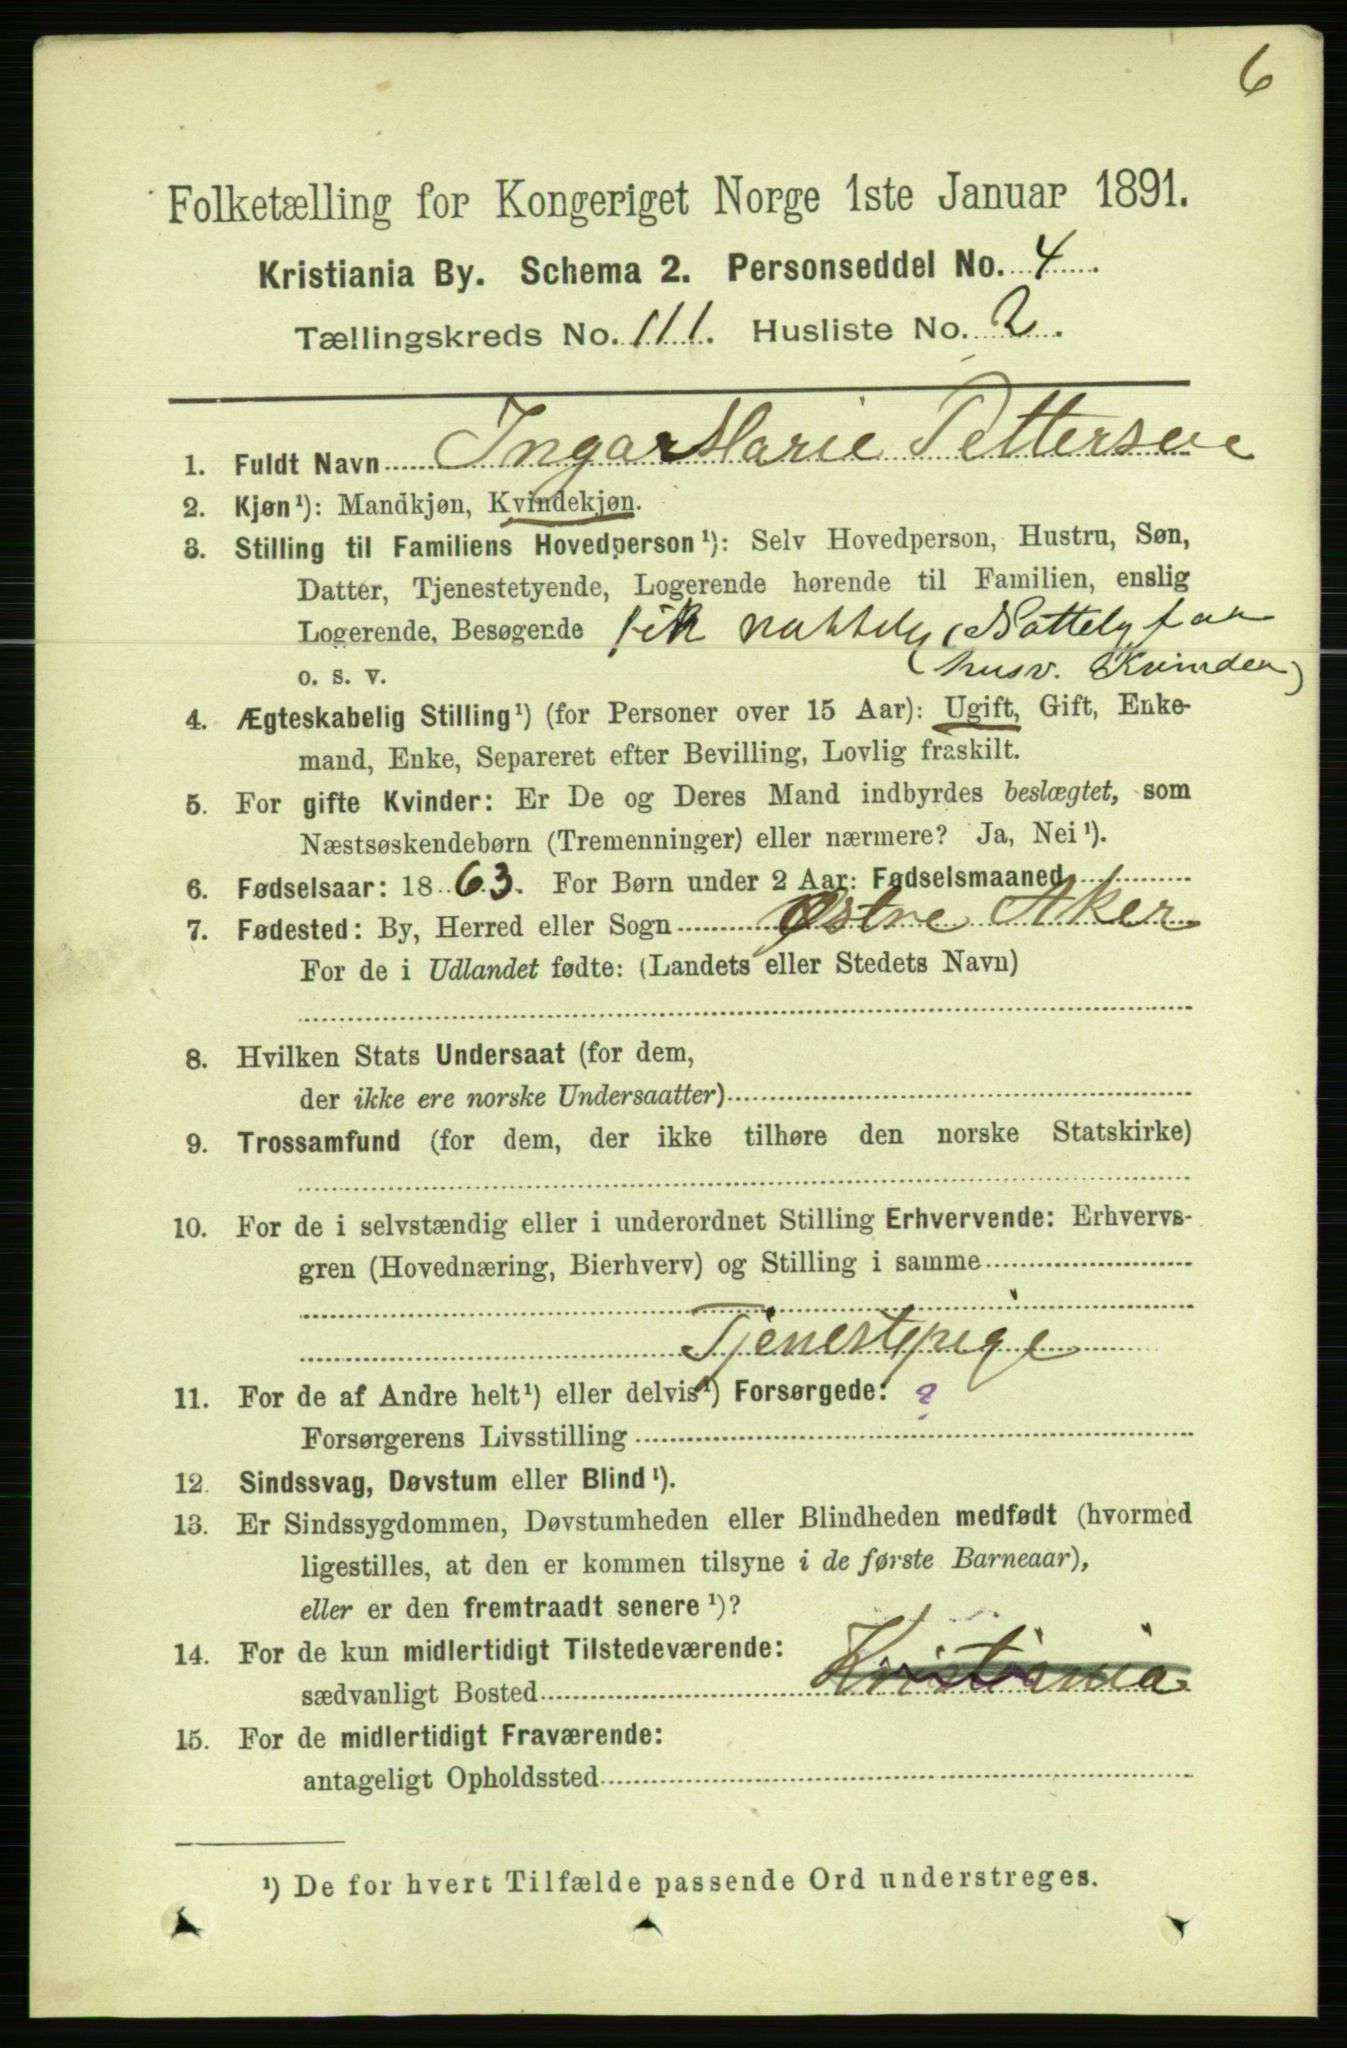 6
Folketælling for Kongeriget Norge 1ste Januar 1891.
Kristiania By. Schema 2. Personseddel No. 4.
Tællingskreds No. 111. Husliste No. 2.
1. Fuldt Navn Inga Marie Pettersen
2. Kjøn¹): Mandkjøn, Kvindekjøn.
3. Stilling til Familiens Hovedperson¹): Selv Hovedperson, Hustru, Søn,
Datter, Tjenestetyende, Logerende hørende til Familien, enslig
Logerende, Besøgende fik nattely (Nattely for
o. s. v. husv. Kvinder)
4. Ægteskabelig Stilling¹) (for Personer over 15 Aar): Ugift, Gift, Enke-
mand, Enke, Separeret efter Bevilling, Lovlig fraskilt.
5. For gifte Kvinder: Er De og Deres Mand indbyrdes beslægtet, som
Næstsøskendebørn (Tremenninger) eller nærmere? Ja, Nei¹).
6. Fødselsaar: 1863. For Børn under 2 Aar: Fødselsmaaned
7. Fødested: By, Herred eller Sogn Østre Aker
For de i Udlandet fødte: (Landets eller Stedets Navn)
8. Hvilken Stats Undersaat (for dem,
der ikke ere norske Undersaatter)
9. Trossamfund (for dem, der ikke tilhøre den norske Statskirke)
10. For de i selvstændig eller i underordnet Stilling Erhvervende: Erhvervs-
gren (Hovednæring, Bierhverv) og Stilling i samme
Tjenestepige
11. For de af Andre helt¹) eller delvis¹) Forsørgede: ?
Forsørgerens Livsstilling
12. Sindssvag, Døvstum eller Blind¹).
13. Er Sindssygdommen, Døvstumheden eller Blindheden medfødt (hvormed
ligestilles, at den er kommen tilsyne i de første Barneaar),
eller er den fremtraadt senere¹)?
14. For de kun midlertidigt Tilstedeværende:
sædvanligt Bosted Kristiania
15. For de midlertidigt Fraværende:
antageligt Opholdssted
¹) De for hvert Tilfælde passende Ord understreges.